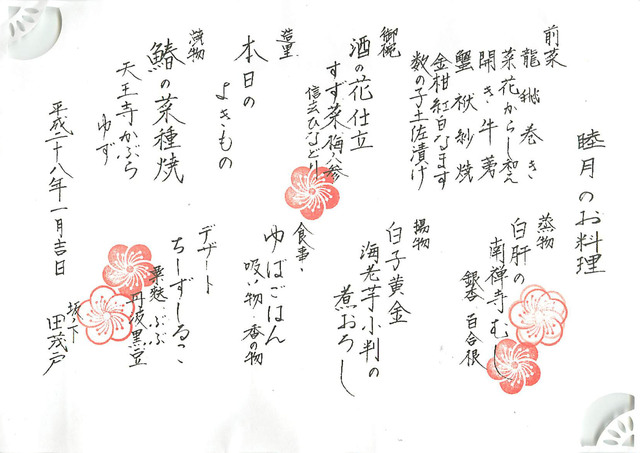 睦月のお料理
前菜
龍飛巻き
菜花からし和え
開き牛蒡
蟹袱紗焼
金柑紅白なます
数の子土佐漬け
御椀
酒の花仕立
すず菜 梅人参
信玄ひなどり
造里
本日の
よきもの
焼物
鰆の菜種焼
天王寺かぶら
ゆず
蒸物
白肝の
南禅寺むし
銀杏 百合根
揚物
白子黄金
海老芋小判の
煮おろし
食事・
ゆばごはん
吸い物・香の物
デザート
ちーずしるこ
粟麩 ぶぶ
丹波黒豆
平成二十八年一月吉日
坂ノ下
田茂戸